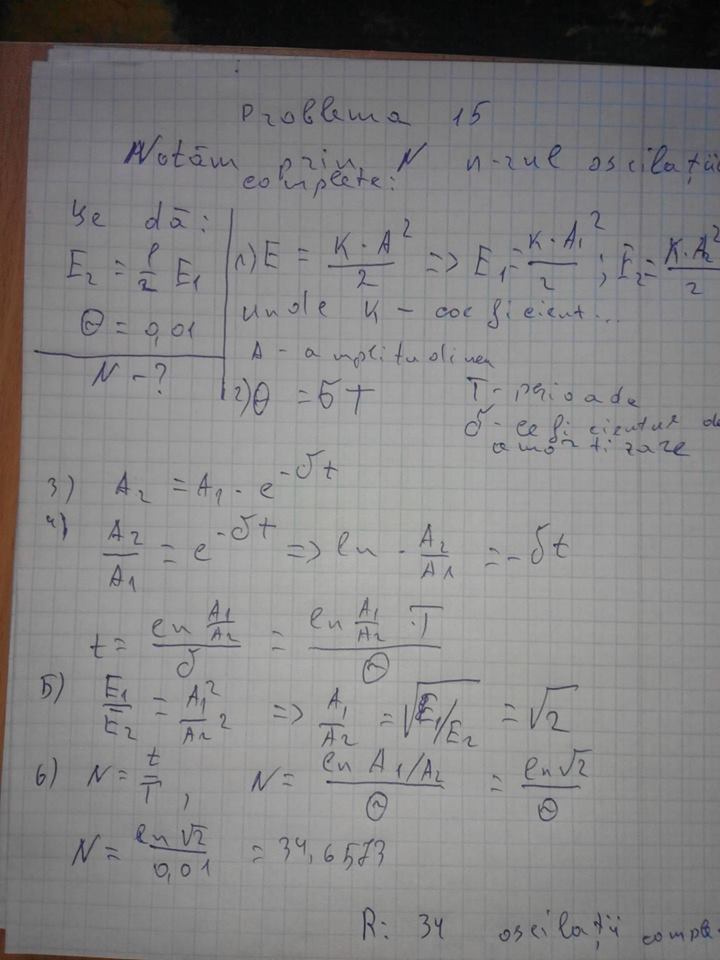 Problema 15
Notăm prin N n-rul oscilații
complete:
Se dă:
E₂ = 1/2 E₁
Θ = 0,01
N - ?
1) E = K·A²/2 => E₁ = K·A₁²/2 ; E₂ = K·A₂²/2
unde K - coeficient...
A - amplitudinea
2) Θ = δT
T - perioada
δ - coeficientul de
amortizare
3) A₂ = A₁ · e^(-δt)
4) A₂/A₁ = e^(-δt) => ln · A₂/A₁ = -δt
t = ln A₁/A₂ / δ = ln A₁/A₂ · T / Θ
5) E₁/E₂ = A₁²/A₂² => A₁/A₂ = √(E₁/E₂) = √2
6) N = t/T , N = ln A₁/A₂ / Θ = ln√2 / Θ
N = ln√2 / 0,01 = 34,6573
R: 34 oscilații comple